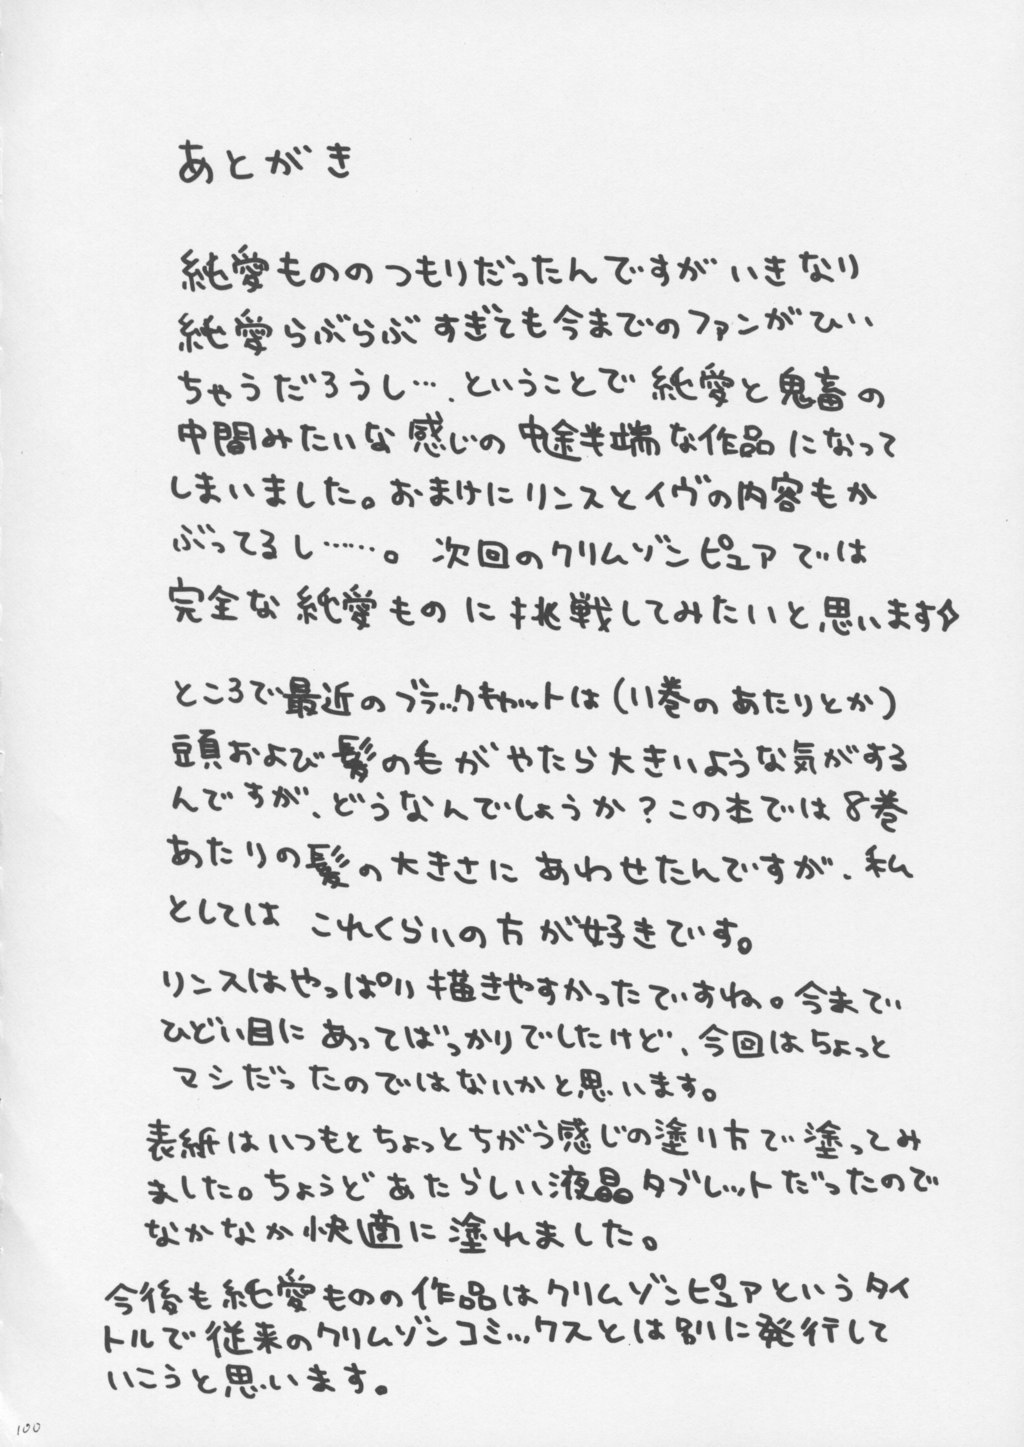 あとがき
純愛もののつもりだったんですがいきなり
純愛らぶらぶすぎても今までのファンがひい
ちゃうだろうし…、ということで純愛と鬼畜の
中間みたいな感じの中途半端な作品になって
しまいました。おまけにリンスとイヴの内容もか
ぶってるし……。次回のクリムゾンピュアでは
完全な純愛ものに挑戦してみたいと思います
ところで最近のブラックキャットは(11巻のあたりとか)
頭および髪の毛がやたら大きいような気がする
んですが、どうなんでしょうか?この本では8巻
あたりの髪の大きさにあわせたんですが、私
としてはこれくらいの方が好きです。
リンスはやっぱり描きやすかったですね。今まで
ひどい目にあってばっかりでしたけど、今回はちょっと
マシだったのではないかと思います。
表紙はいつもとちょっとちがう感じの塗り方で塗ってみ
ました。ちょうどあたらしい液晶タブレットだったので
なかなか快適に塗れました。
今後も純愛ものの作品はクリムゾンピュアというタイ
トルで従来のクリムゾンコミックスとは別に発行して
いこうと思います。
100